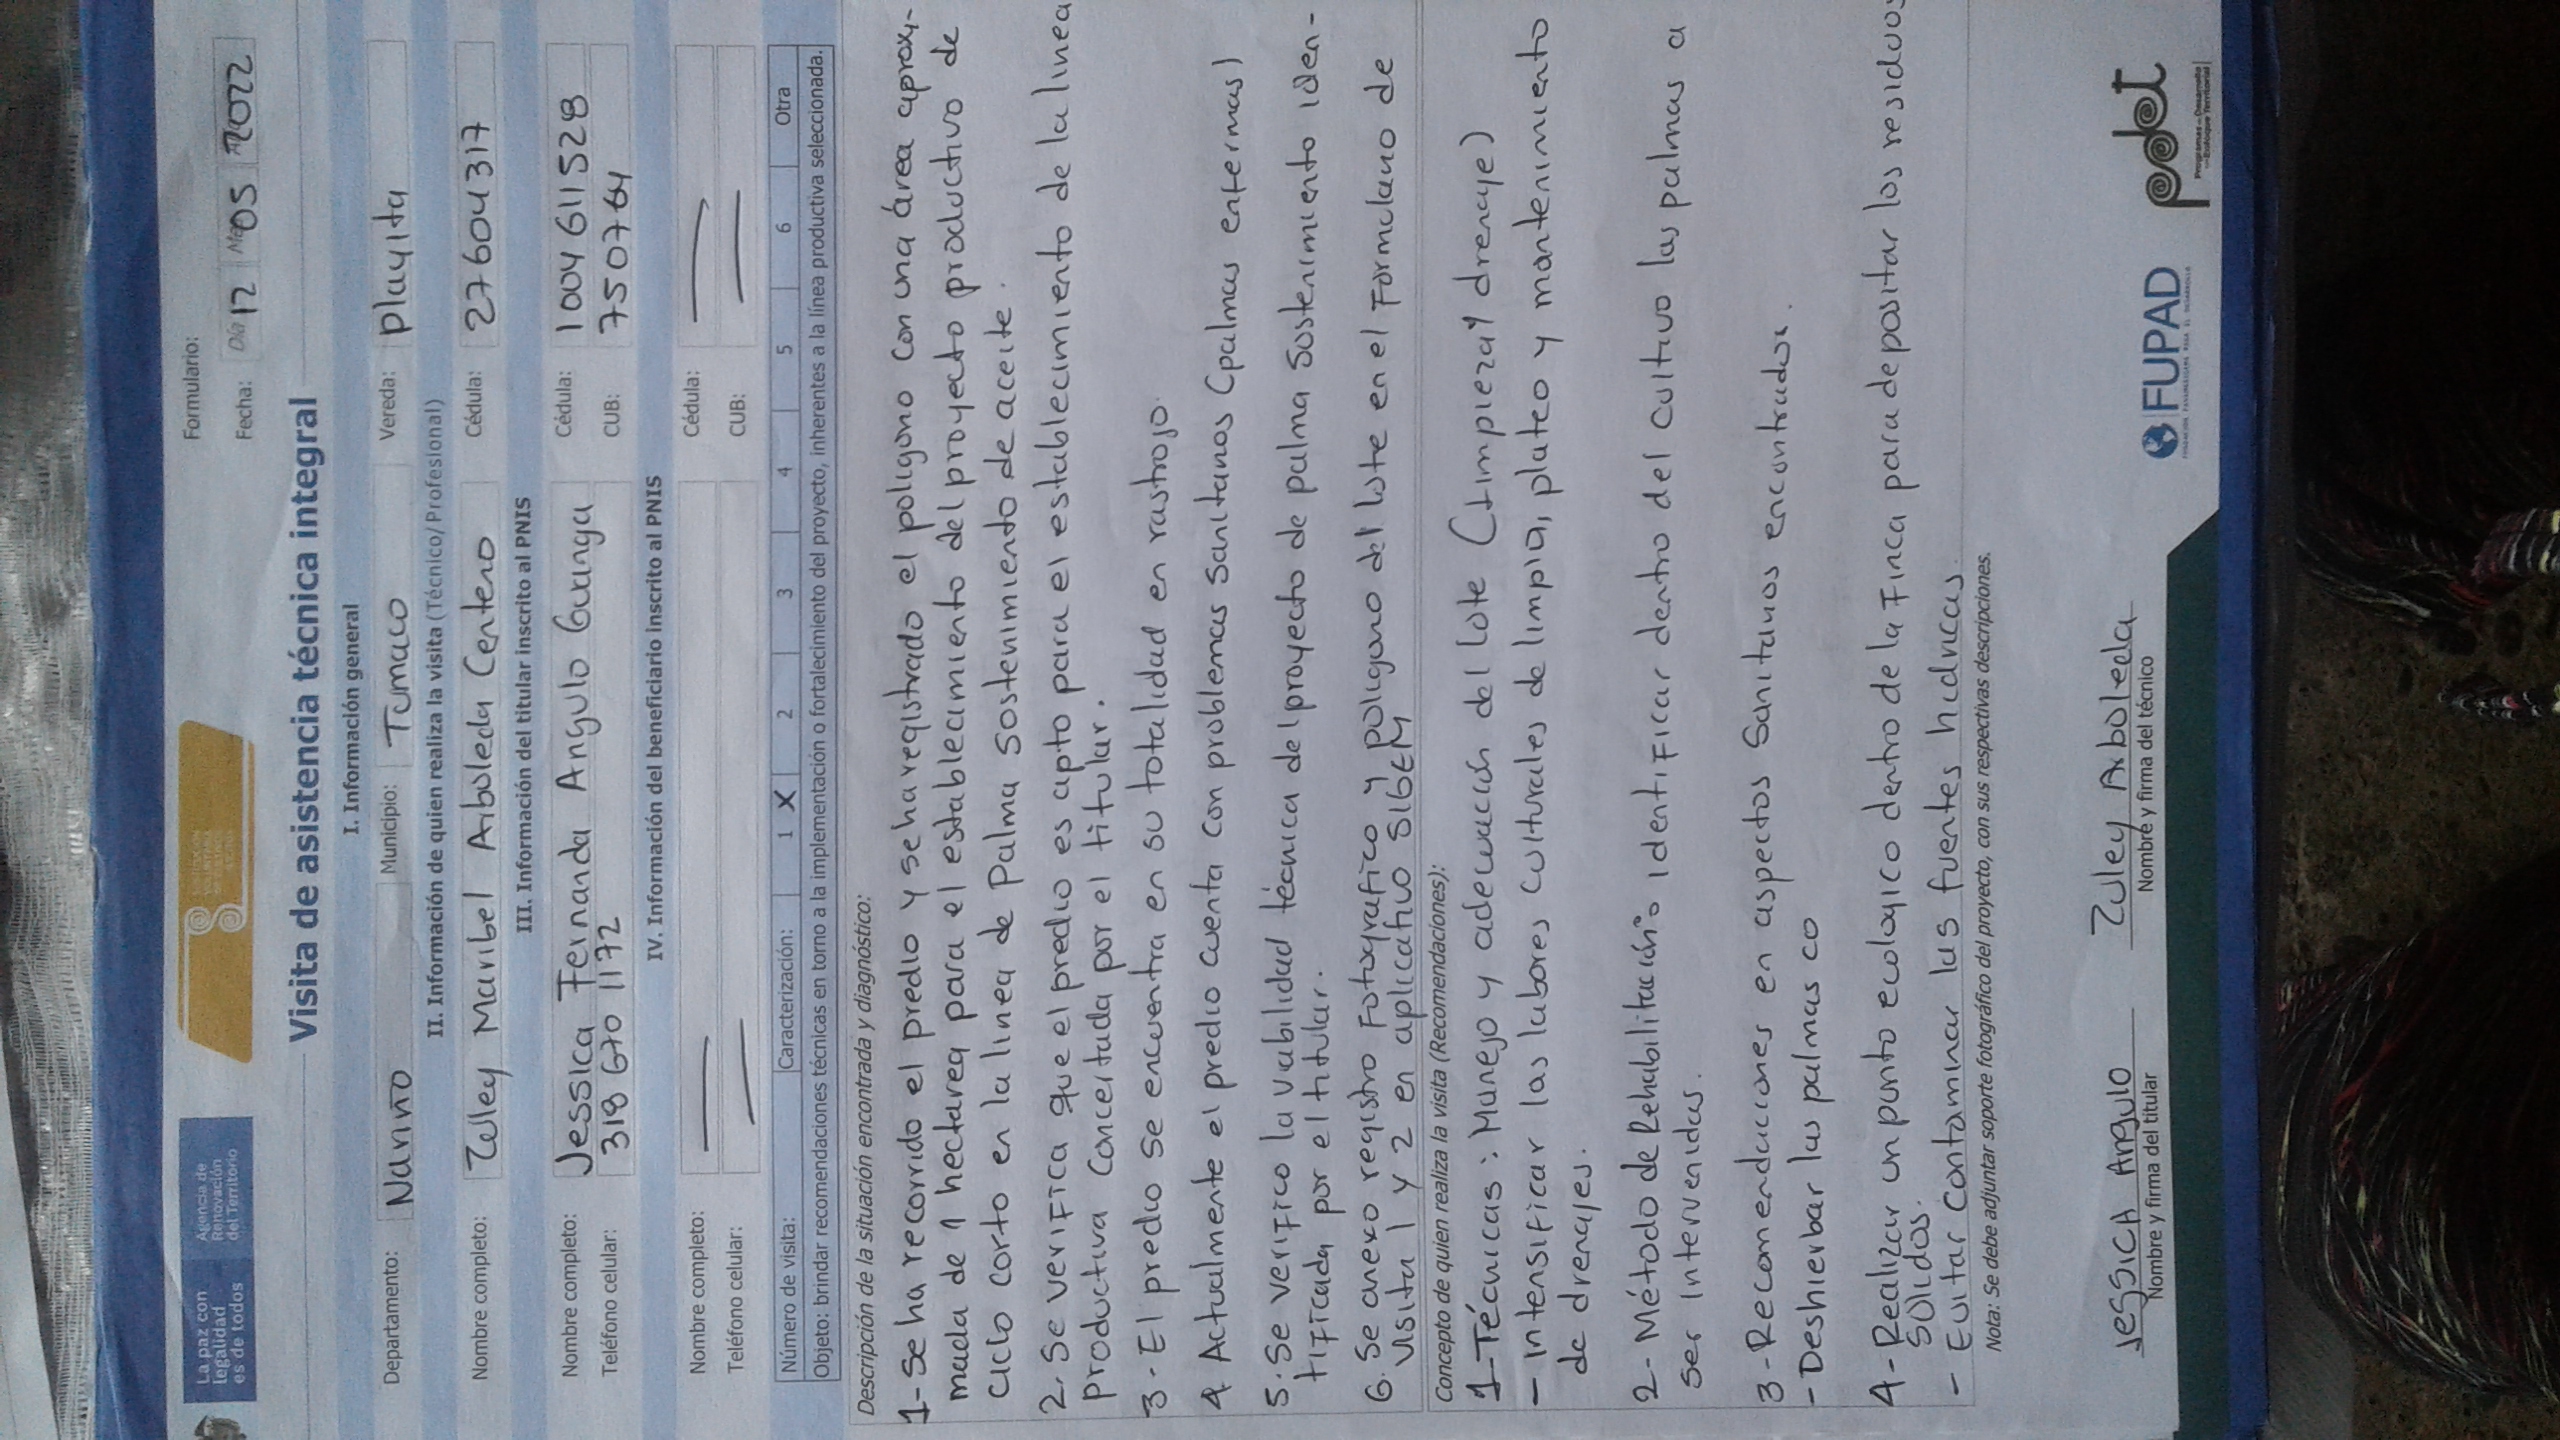 La paz con
legalidad
es de todos
Agencia de
Renovación
del Territorio
Formulario:
Fecha: Día 12 Mes 05 Año 2022
Visita de asistencia técnica integral
I. Información general
Departamento: Nariño Municipio: Tumaco Vereda: playita
II. Información de quien realiza la visita (Técnico/Profesional)
Nombre completo: Zuley Maribel Arboleda Centeno Cédula: 27604317
III. Información del titular inscrito al PNIS
Nombre completo: Jessica Fernanda Angulo Guanga Cédula: 1004611528
Teléfono celular: 318 670 1172 CUB: 750764
IV. Información del beneficiario inscrito al PNIS
Nombre completo: — Cédula: —
Teléfono celular: — CUB: —
Número de visita: Caracterización: 1 X 2 3 4 5 6 Otra
Objeto: brindar recomendaciones técnicas en torno a la implementación o fortalecimiento del proyecto, inherentes a la línea productiva seleccionada.
Descripción de la situación encontrada y diagnóstico:
1- Se ha recorrido el predio y se ha registrado el poligono con una área aproxi-
mada de 1 hectarea para el establecimiento del proyecto productivo de
ciclo corto en la linea de Palma sostenimiento de aceite.
2. Se verifica que el predio es apto para el establecimiento de la linea
productiva concertada por el titular.
3- El predio se encuentra en su totalidad en rastrojo.
4 Actualmente el predio cuenta con problemas sanitarios (palmas enfermas)
5. Se verifico la viabilidad técnica del proyecto de palma sostenimiento iden-
tificada por el titular.
6. Se anexo registro fotografico y poligono del lote en el formulario de
visita 1 y 2 en aplicativo SIGEM
Concepto de quien realiza la visita (Recomendaciones):
1-Técnicas: Manejo y adecuación del lote (Limpieza y drenaje)
- intensificar las labores culturales de limpia, plateo y mantenimiento
de drenajes.
2- Método de Rehabilitación: identificar dentro del cultivo las palmas a
ser intervenidas.
3- Recomendaciones en aspectos Sanitarios encontrados.
- Deshierbar las palmas co
4- Realizar un punto ecologico dentro de la finca para depositar los residuos
solidos.
- Evitar contaminar las fuentes hidricas.
Nota: Se debe adjuntar soporte fotográfico del proyecto, con sus respectivas descripciones.
Jessica Angulo
Nombre y firma del titular
Zuley Arboleda
Nombre y firma del técnico
FUPAD
pdet
Programas de Desarrollo
con Enfoque Territorial